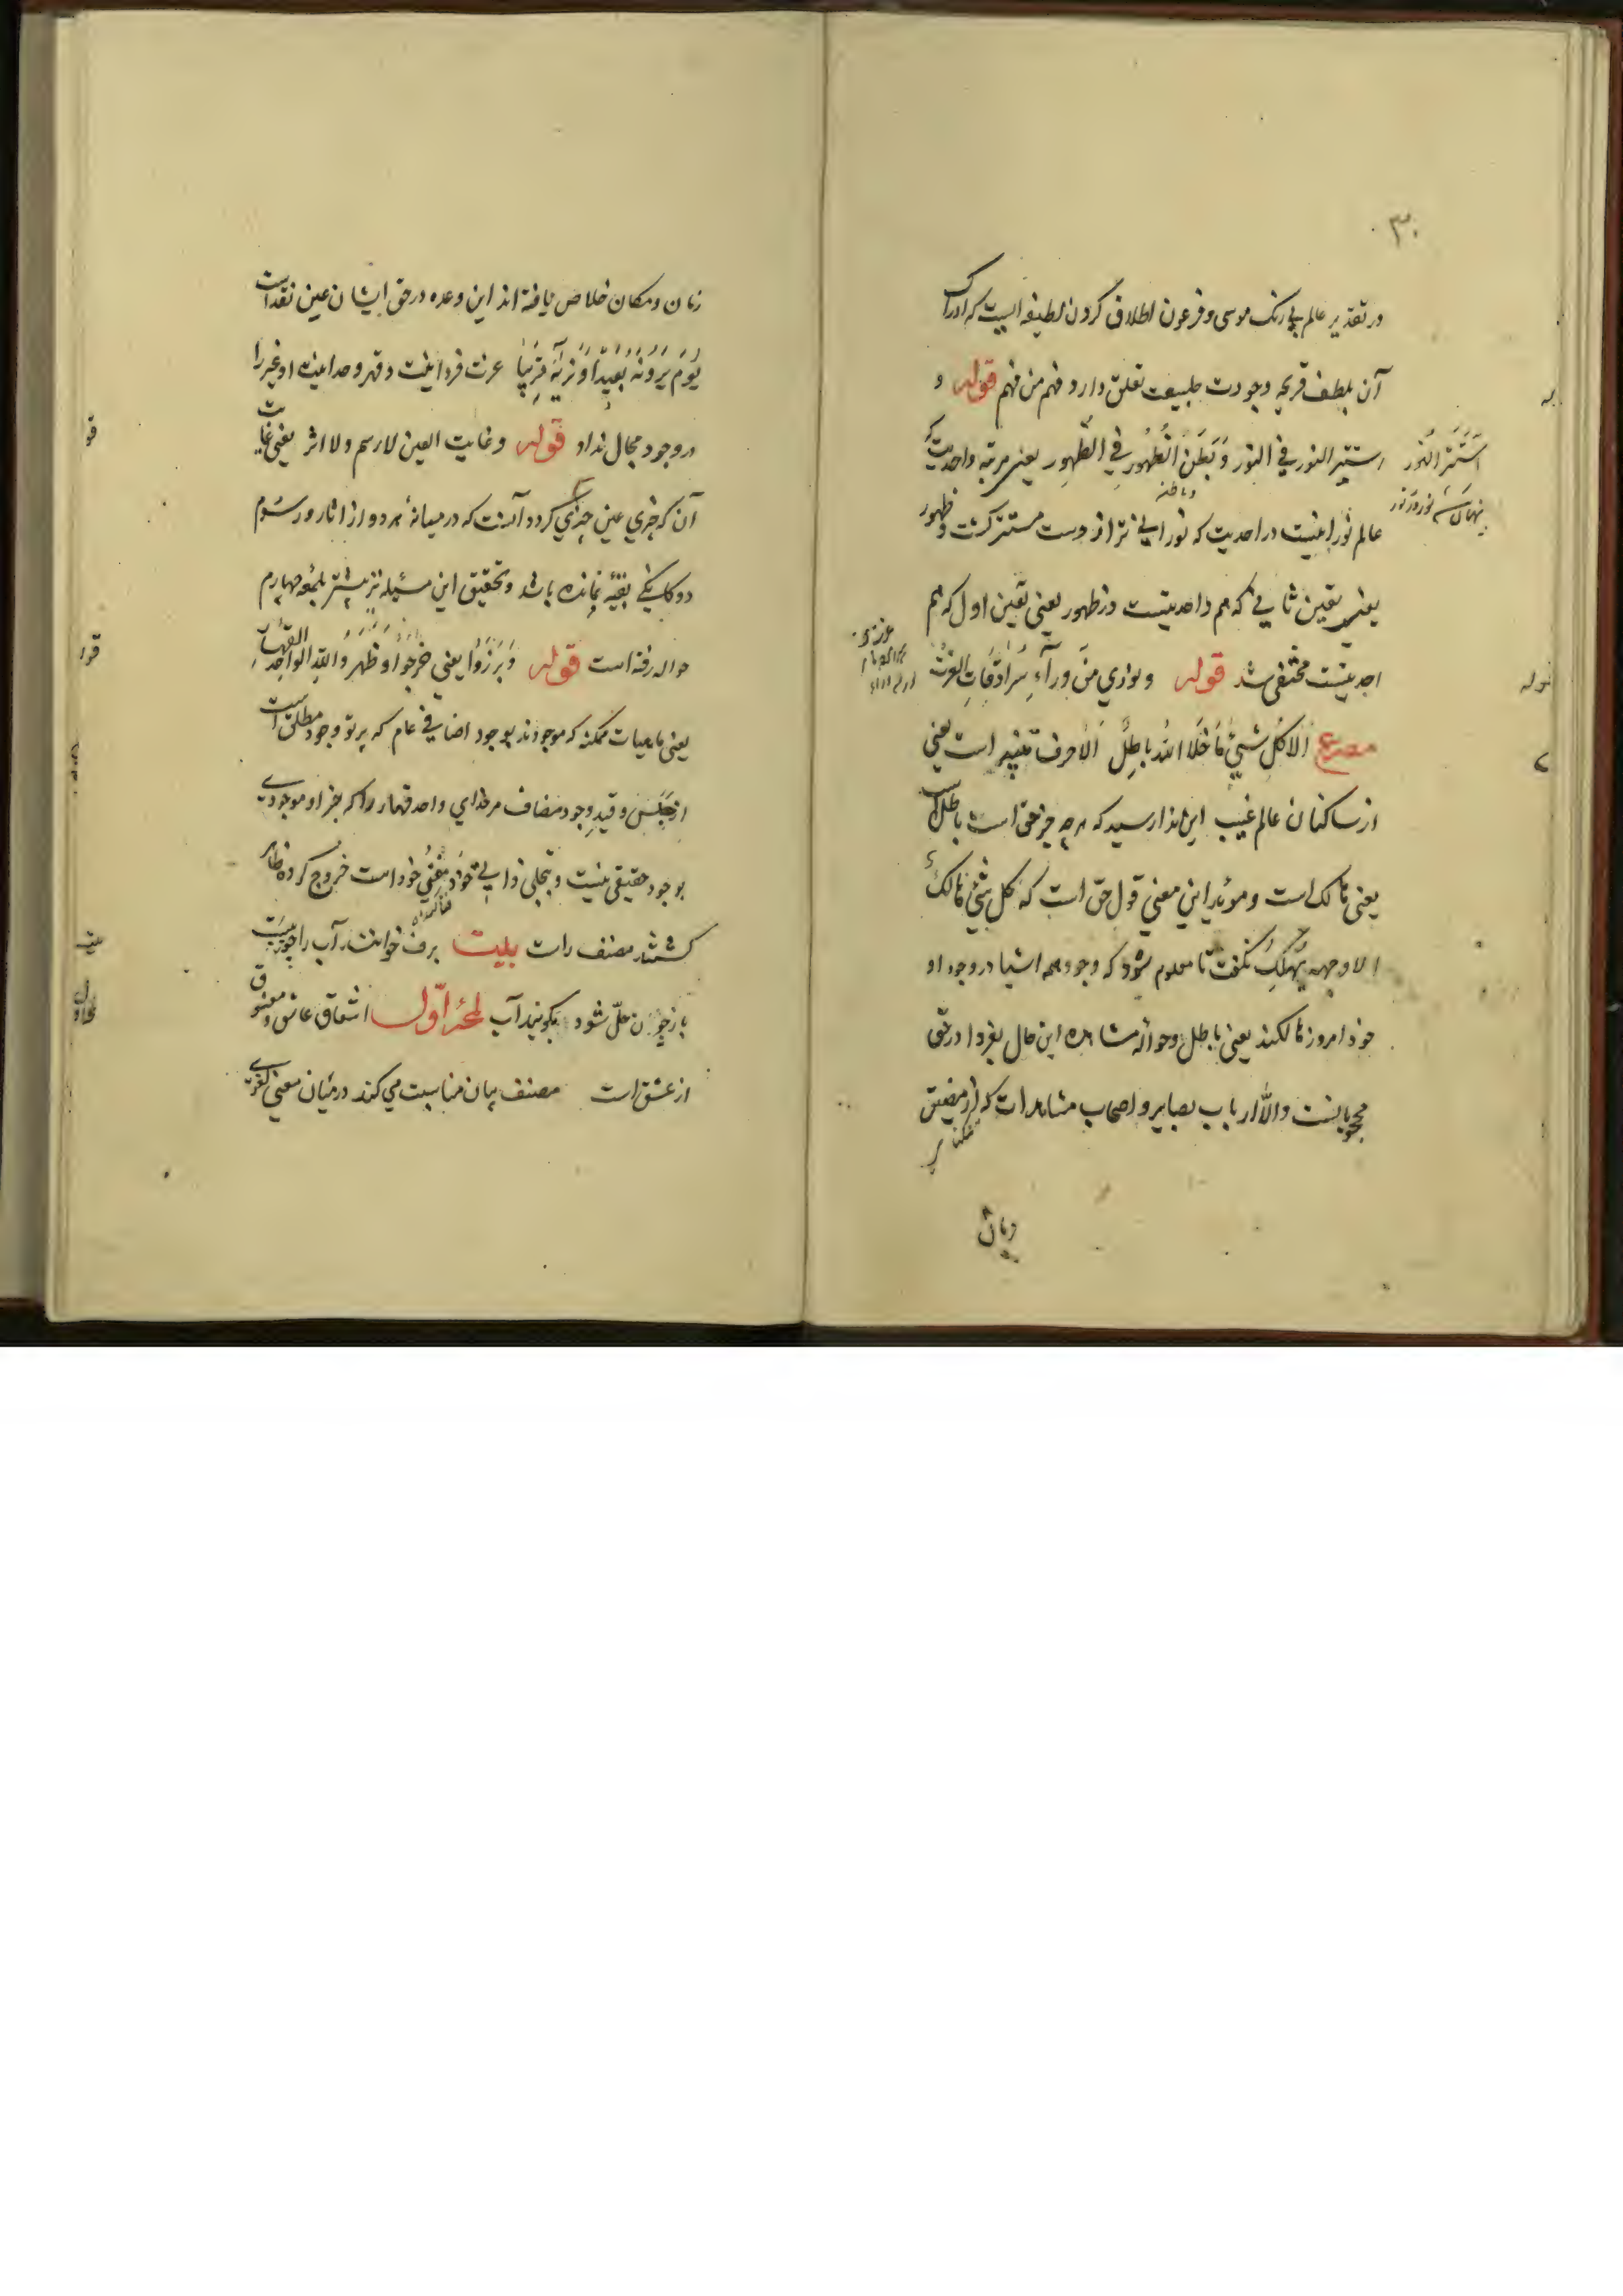 ۳۰
در تقدیر عالم بی رنک موسی و فرعون اطلاق کردن لطیفه ایست که ادراک
آن بلطف قریحه وجودت طبیعت تعلق دارد فهم من فهم قوله و
استتر النور فی النور وَبَطَنَ الظُّهُورِ فی الظُّهورِ یعنی مرتبه واحدیت که
اِستَتَرَ النّور
پنهان شد نور در نور
عالم نورانیت در احدیت که نورانی تر از وست مستتر کشت و ظهور
یعنی تعین ثانی که هم واحدیتست در ظهور یعنی تعین اول که هم
احدیتست مختفی شد قوله ونودي مِنْ وَرآءِ سُرَادِقَاتِ العِزَّت
مصرع اَلاَ کُلُّ شَیْئٍ مَا خَلَا اللّٰهُ بَاطِلٌ اَلاَ حرف تنبیه است یعنی
از ساکنان عالم غیب این ندا رسید که هرچه جز حق است باطل است
یعنی هالک است و موئد این معنی قول حق است که کل شیئ هالکٌ
الا وجهه یهلک نکفت تا معلوم شود که وجود همه اشیا در وجود او
خود امروز هالکند یعنی باطل و حواله مشاهده این حال بفردا در حق
محجوبانست والّا ارباب بصایر و اصحاب مشاهدات که از مضیق
زمان
زمان و مکان خلاص یافته اند این وعده در حق ایشان عین نقد است
یَوْمَ یَرَوْنَهُ بَعِیدًا وَنَرٰهُ قَرِیبًا عزت فردانیت و قهر وحدانیت او غیر را
در وجود مجال نداد قوله وغابت العین لا رسم ولا اثر یعنی غایت
آن که چیزی عین چیزی کردد آنست که در میانهٔ هر دو از اثار و رسوم
دوکانکی بقیّه نمانده باشد و تحقیق این مسئله نیز بیشتر بلمعهٔ چهارم
حواله رفته است قوله وَبَرَزُوا یعنی خَرَجُوا و ظهر وا للّٰهِ الواحد القهار
یعنی ماهیات ممکنه که موجودند بوجود اضافی عام که پرتو وجود مطلق است
از حَبْس و قیدِ وجود مضاف مر خدای واحد قهار را که جز او موجودی
بوجود حقیقی نیست و بتجلی ذاتی خود مُفنی خود است خروج کرده ظاهر
کشتند مصنف راست بیت برف خوانند آب را چو ببست
باز چون حلّ شود بکویند آب لمعهٔ اوّل اشتقاق عاشق و معشوق
از عشق است مصنف بیان مناسبت می کند در میان معنی لغوی